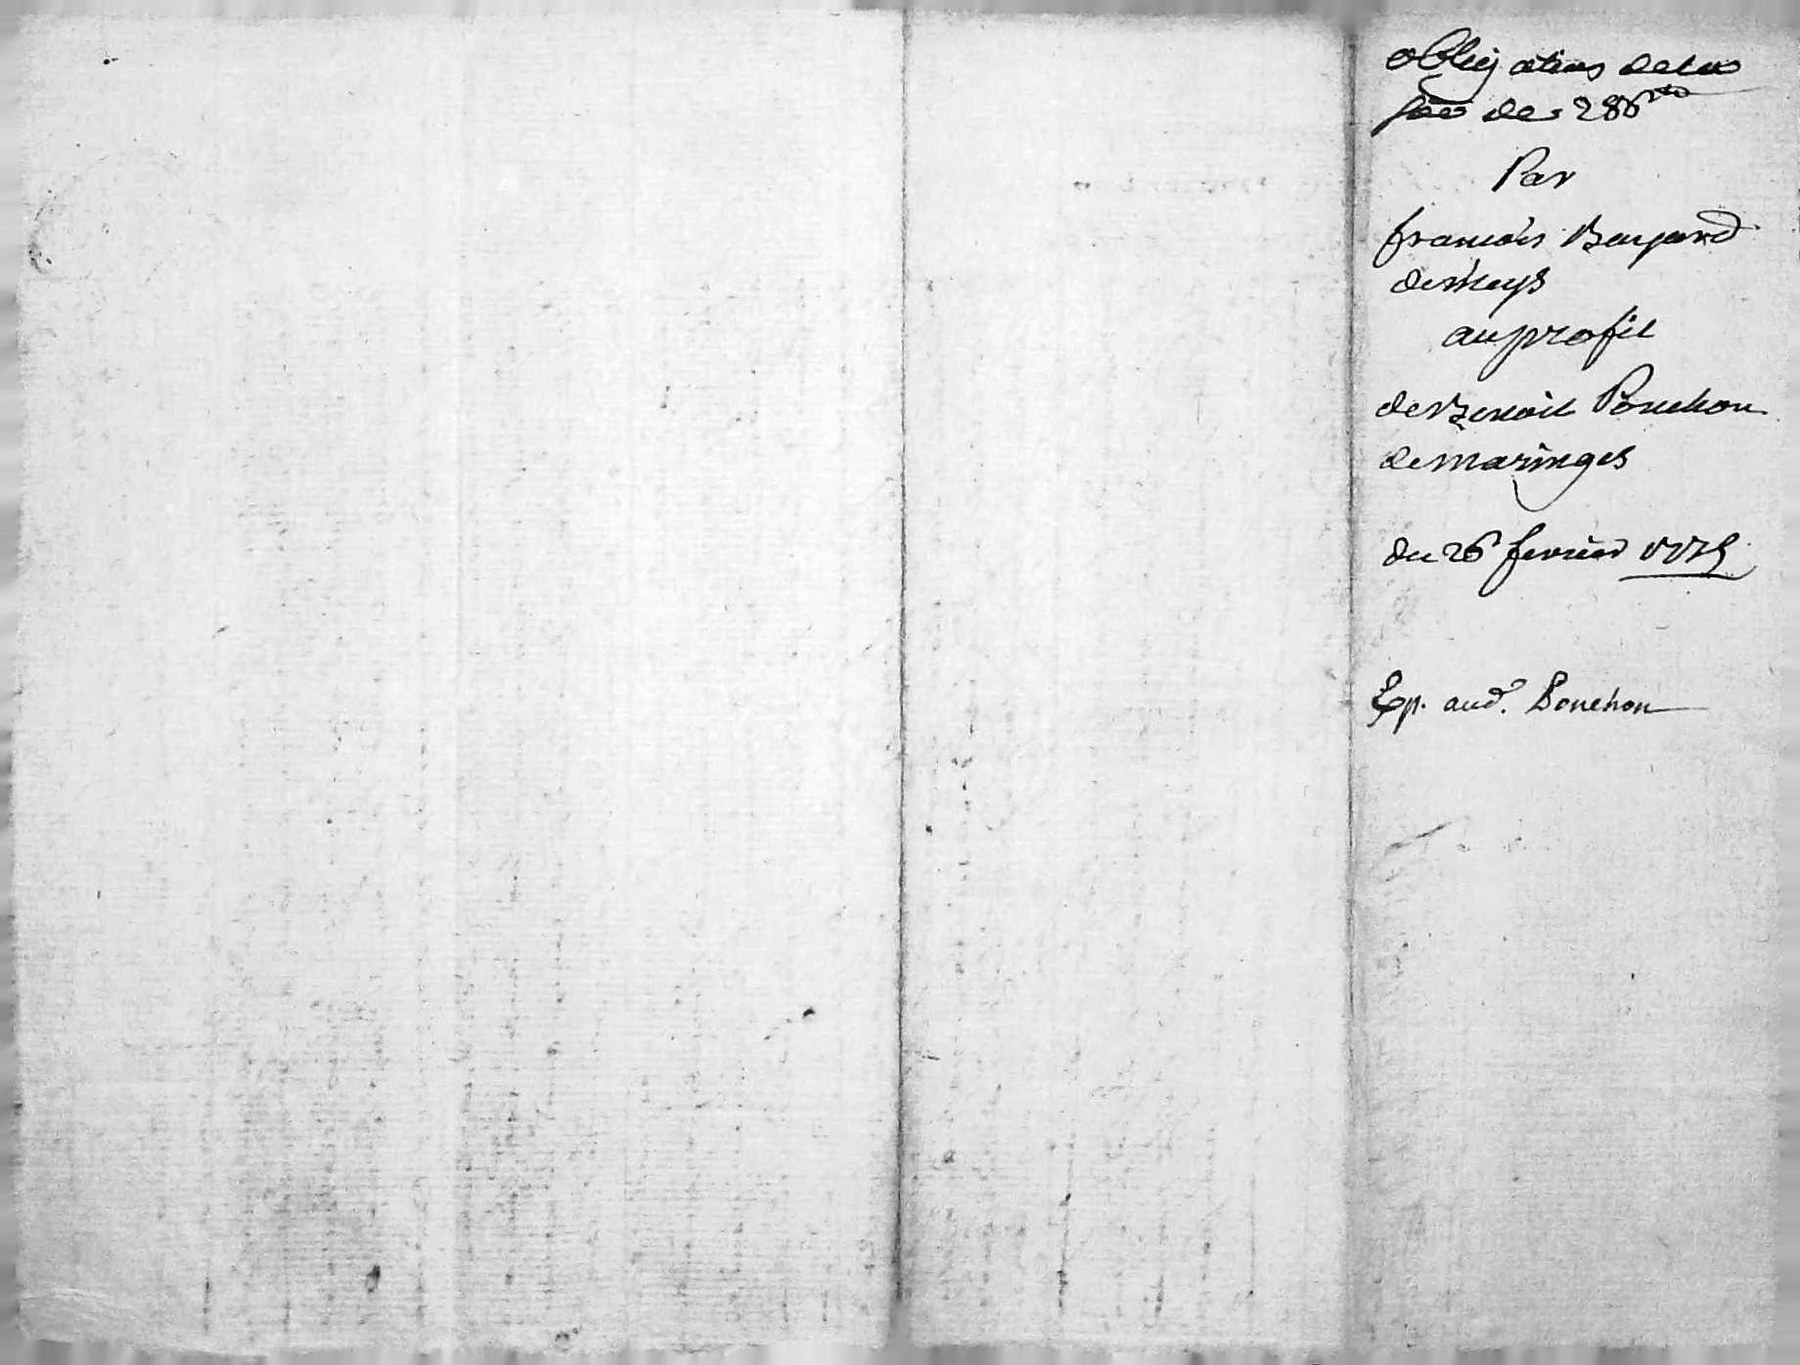 obligation dela
Soe de 286 ₶
Par
francois Bayard
demeys
auprofit
de Benoit Ponchon
demaringes
du 26 fevrier 1775
Exp. aud. Ponchon